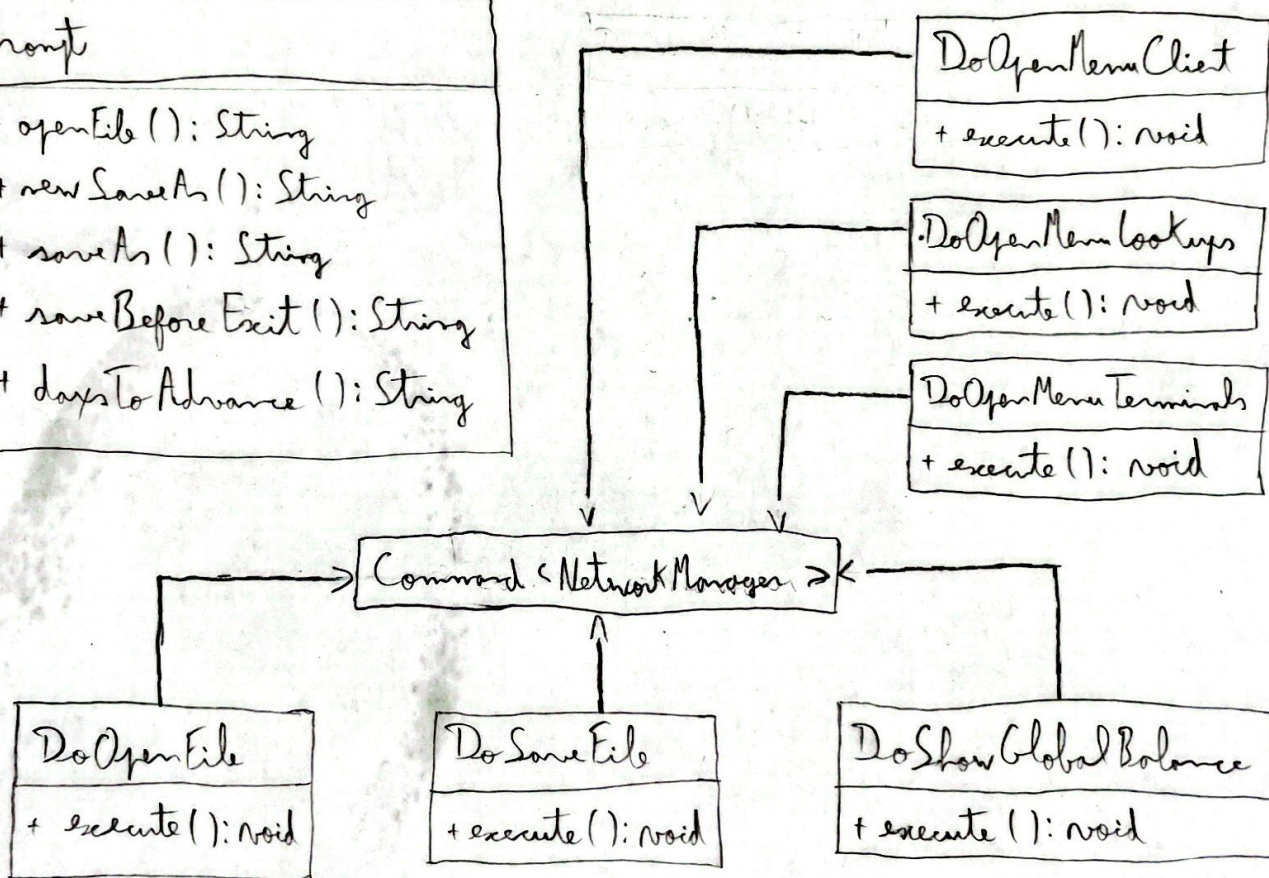 rompt
openFile(): String
+ newSaveAs(): String
+ saveAs(): String
+ saveBeforeExit(): String
+ daysToAdvance(): String
DoOpenMenuClient
+ execute(): void
DoOpenMenuLookups
+ execute(): void
DoOpenMenuTerminals
+ execute(): void
Command <NetworkManager>
DoOpenFile
+ execute(): void
DoSaveFile
+ execute(): void
DoShowGlobalBalance
+ execute(): void